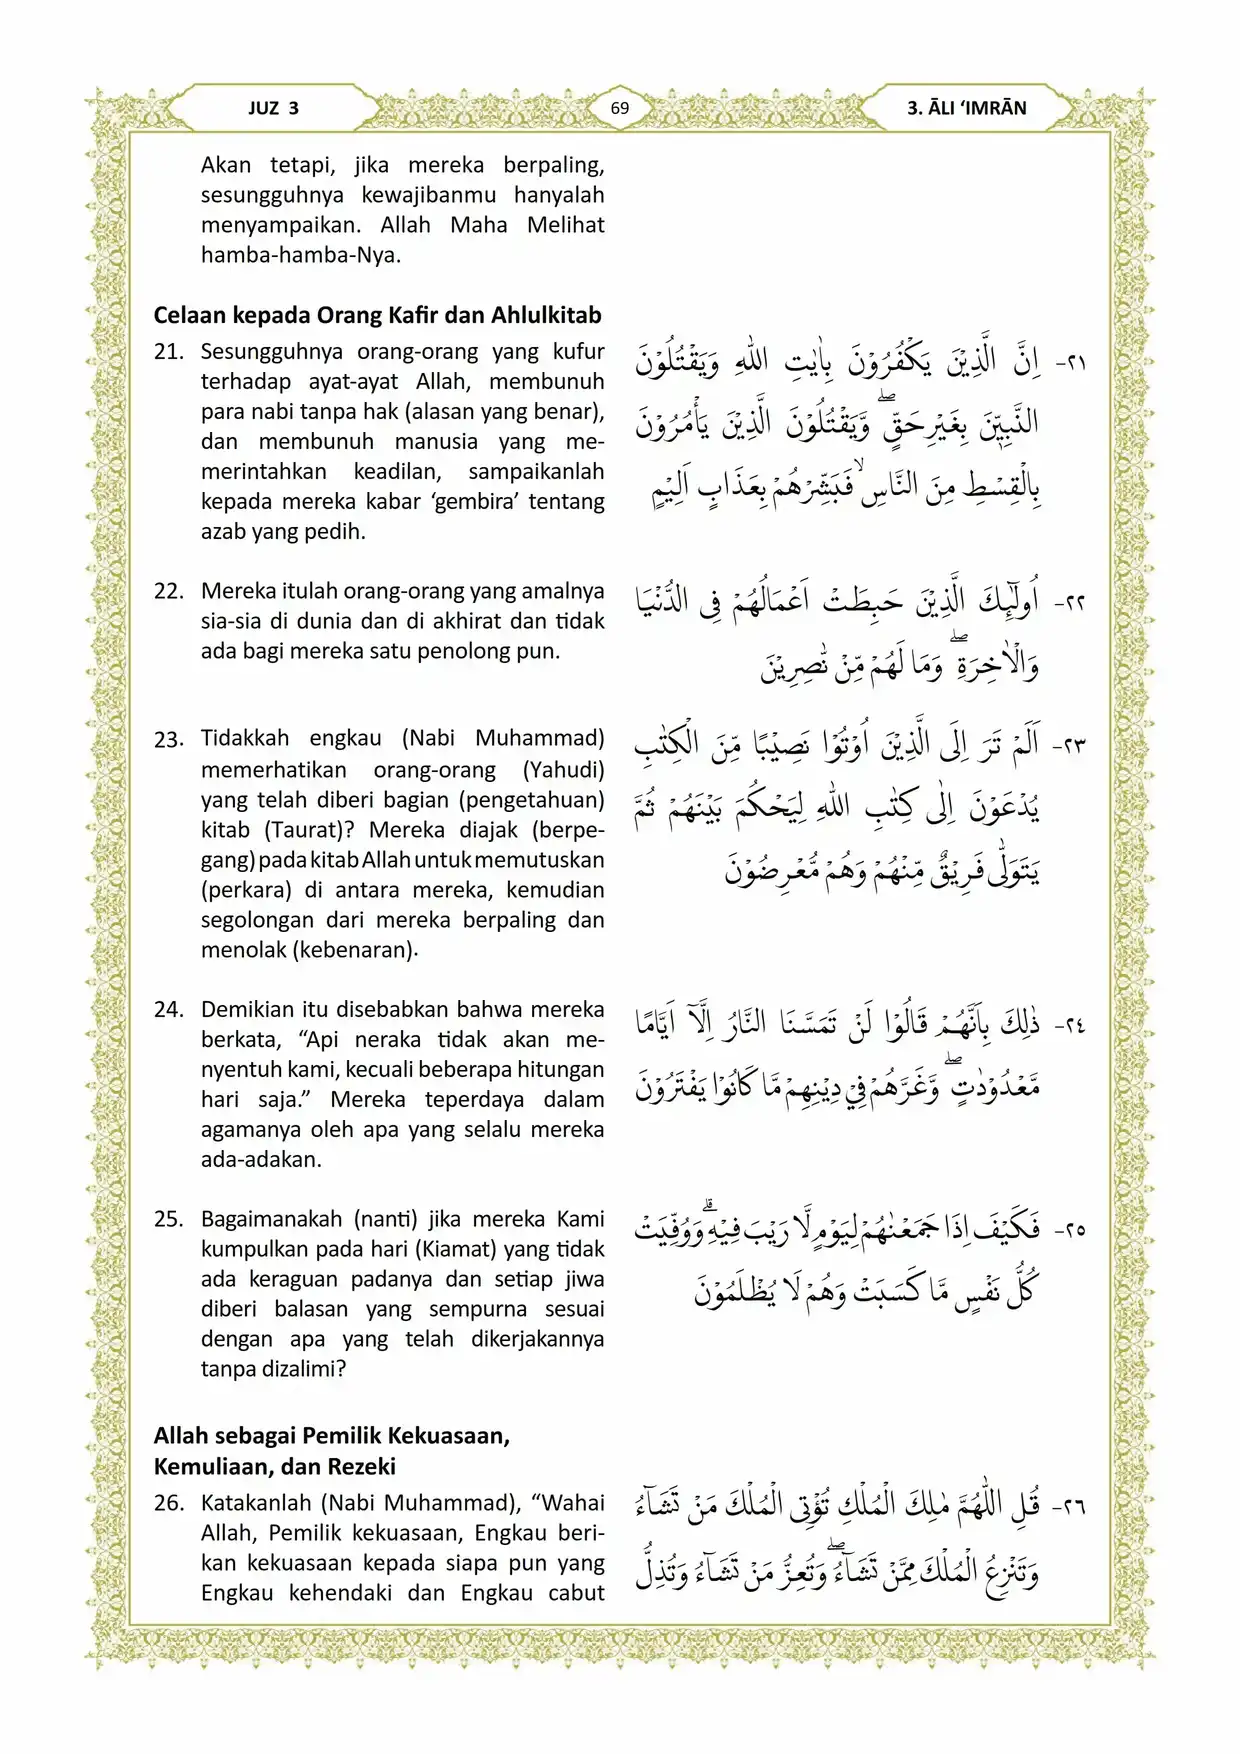 JUZ 3
69
3. ĀLI ‘IMRĀN
Akan tetapi, jika mereka berpaling,
sesungguhnya kewajibanmu hanyalah
menyampaikan. Allah Maha Melihat
hamba-hamba-Nya.
Celaan kepada Orang Kafir dan Ahlulkitab
21. Sesungguhnya orang-orang yang kufur
terhadap ayat-ayat Allah, membunuh
para nabi tanpa hak (alasan yang benar),
dan membunuh manusia yang me-
merintahkan keadilan, sampaikanlah
kepada mereka kabar ‘gembira’ tentang
azab yang pedih.
٢١- اِنَّ الَّذِيْنَ يَكْفُرُوْنَ بِاٰيٰتِ اللّٰهِ وَيَقْتُلُوْنَ
النَّبِيّٖنَ بِغَيْرِحَقٍّۖ وَّيَقْتُلُوْنَ الَّذِيْنَ يَأْمُرُوْنَ
بِالْقِسْطِ مِنَ النَّاسِۙ فَبَشِّرْهُمْ بِعَذَابٍ اَلِيْمٍ
22. Mereka itulah orang-orang yang amalnya
sia-sia di dunia dan di akhirat dan tidak
ada bagi mereka satu penolong pun.
٢٢- اُولٰۤىِٕكَ الَّذِيْنَ حَبِطَتْ اَعْمَالُهُمْ فِى الدُّنْيَا
وَالْاٰخِرَةِۖ وَمَا لَهُمْ مِّنْ نّٰصِرِيْنَ
23. Tidakkah engkau (Nabi Muhammad)
memerhatikan orang-orang (Yahudi)
yang telah diberi bagian (pengetahuan)
kitab (Taurat)? Mereka diajak (berpe-
gang) pada kitab Allah untuk memutuskan
(perkara) di antara mereka, kemudian
segolongan dari mereka berpaling dan
menolak (kebenaran).
٢٣- اَلَمْ تَرَ اِلَى الَّذِيْنَ اُوْتُوْا نَصِيْبًا مِّنَ الْكِتٰبِ
يُدْعَوْنَ اِلٰى كِتٰبِ اللّٰهِ لِيَحْكُمَ بَيْنَهُمْ ثُمَّ
يَتَوَلّٰى فَرِيْقٌ مِّنْهُمْ وَهُمْ مُّعْرِضُوْنَ
24. Demikian itu disebabkan bahwa mereka
berkata, “Api neraka tidak akan me-
nyentuh kami, kecuali beberapa hitungan
hari saja.” Mereka teperdaya dalam
agamanya oleh apa yang selalu mereka
ada-adakan.
٢٤- ذٰلِكَ بِاَنَّهُمْ قَالُوْا لَنْ تَمَسَّنَا النَّارُ اِلَّآ اَيَّامًا
مَّعْدُوْدٰتٍۖ وَّغَرَّهُمْ فِيْ دِيْنِهِمْ مَّا كَانُوْا يَفْتَرُوْنَ
25. Bagaimanakah (nanti) jika mereka Kami
kumpulkan pada hari (Kiamat) yang tidak
ada keraguan padanya dan setiap jiwa
diberi balasan yang sempurna sesuai
dengan apa yang telah dikerjakannya
tanpa dizalimi?
٢٥- فَكَيْفَ اِذَا جَمَعْنٰهُمْ لِيَوْمٍ لَّا رَيْبَ فِيْهِۗ وَوُفِّيَتْ
كُلُّ نَفْسٍ مَّا كَسَبَتْ وَهُمْ لَا يُظْلَمُوْنَ
Allah sebagai Pemilik Kekuasaan,
Kemuliaan, dan Rezeki
26. Katakanlah (Nabi Muhammad), “Wahai
Allah, Pemilik kekuasaan, Engkau beri-
kan kekuasaan kepada siapa pun yang
Engkau kehendaki dan Engkau cabut
٢٦- قُلِ اللّٰهُمَّ مٰلِكَ الْمُلْكِ تُؤْتِى الْمُلْكَ مَنْ تَشَاۤءُ
وَتَنْزِعُ الْمُلْكَ مِمَّنْ تَشَاۤءُۖ وَتُعِزُّ مَنْ تَشَاۤءُ وَتُذِلُّ